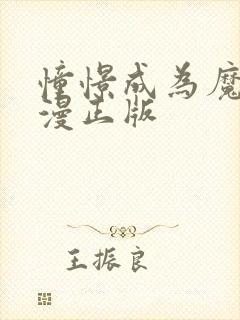 憧憬成为魔
漫正版
王振良